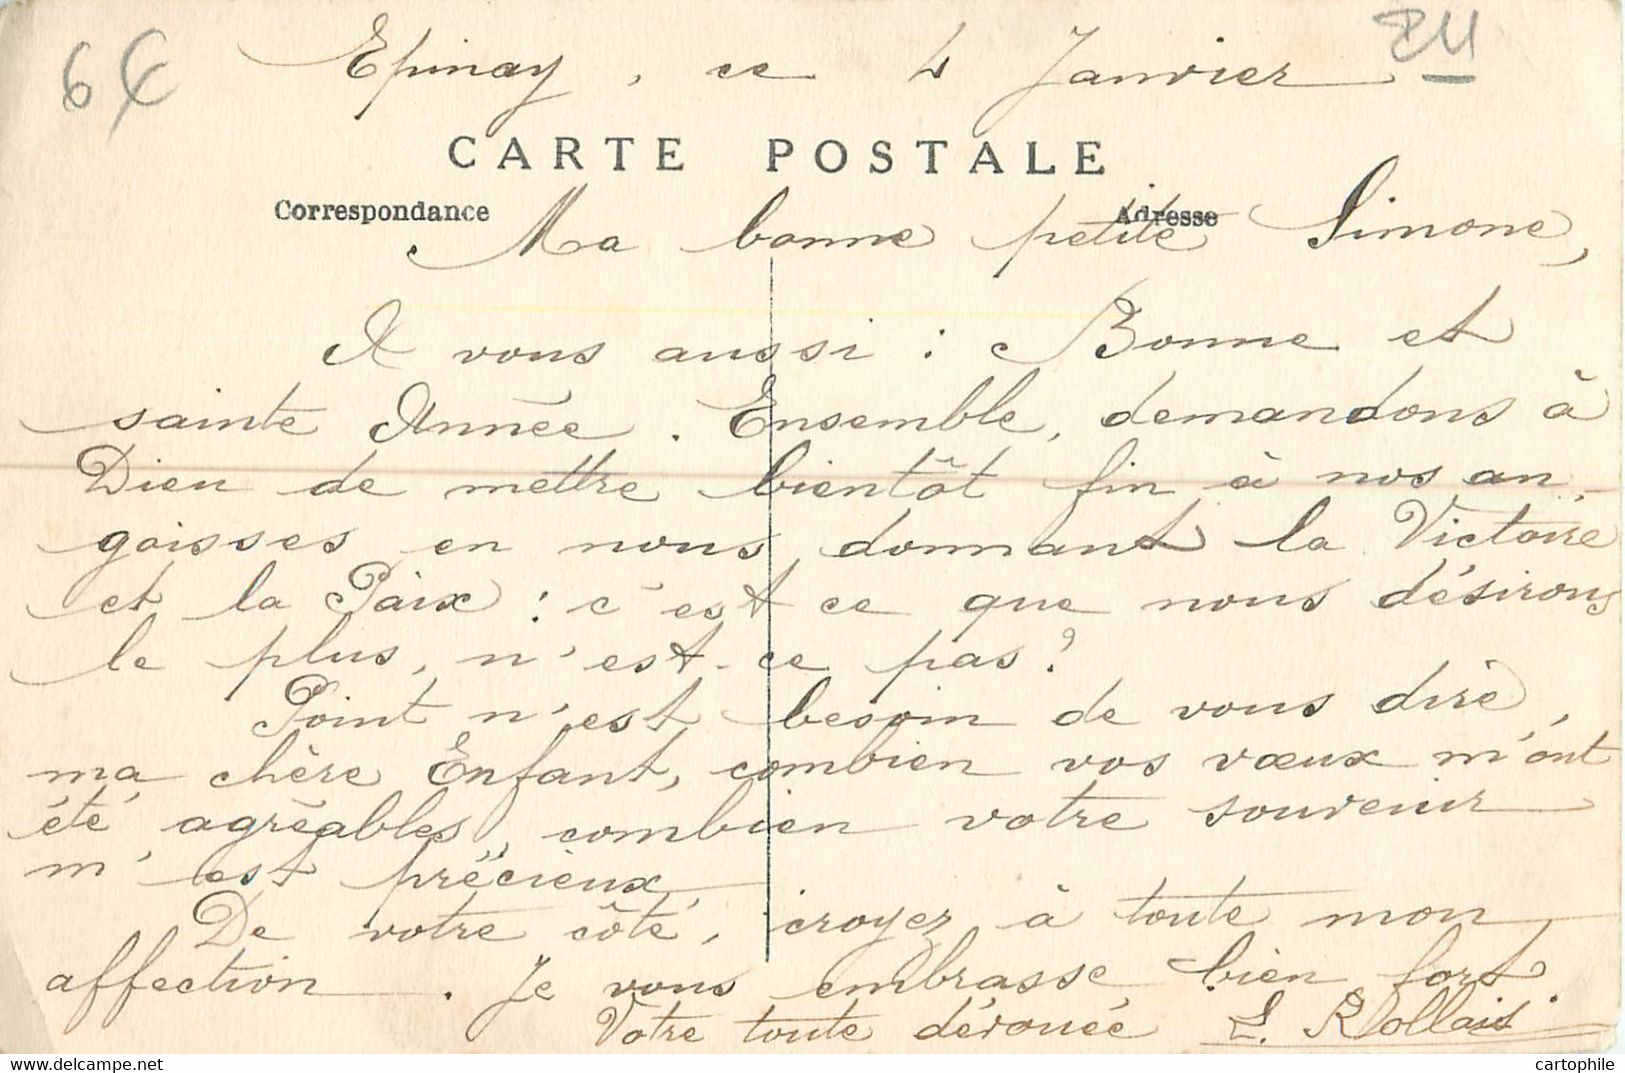 6€
Epinay, ce 4 Janvier
CARTE POSTALE
Correspondance
Adresse
Ma bonne petite Simone,
A vous aussi : Bonne et
sainte Année. Ensemble, demandons à
Dieu de mettre bientôt fin à nos an-
goisses en nous donnant la Victoire
et la Paix : c'est ce que nous désirons
le plus, n'est-ce pas ?
Point n'est besoin de vous dire,
ma chère Enfant, combien vos vœux m'ont
été agréables, combien votre souvenir
m'est précieux.
De votre côté, croyez à toute mon
affection. Je vous embrasse bien fort.
Votre toute dévouée L. Rollais
cartophile